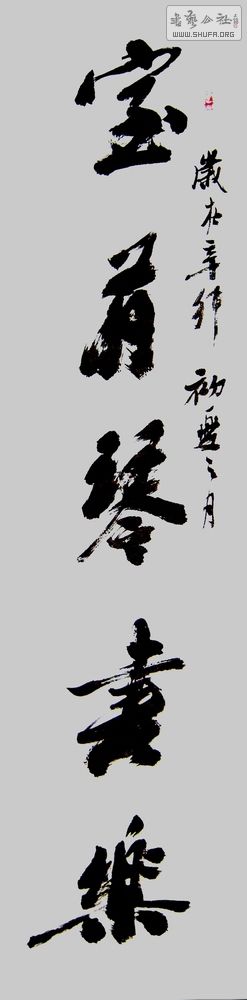 書藝公社
WWW.SHUFA.ORG
歲在辛卯 初夏之月
室有琴書樂